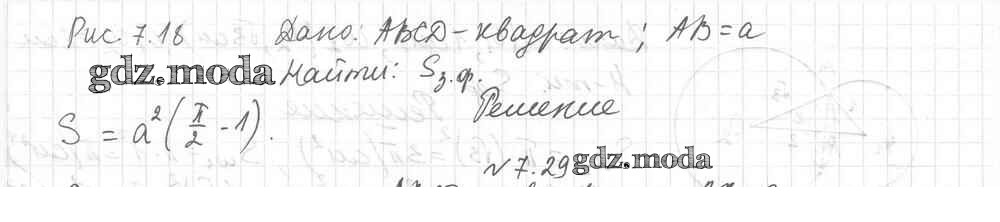 Рис. 7.18 Дано: ABCD - квадрат; AB = a
gdz.moda Найти: Sз.ф.
Решение
S = a²(π/2 - 1).
№7.29 gdz.moda